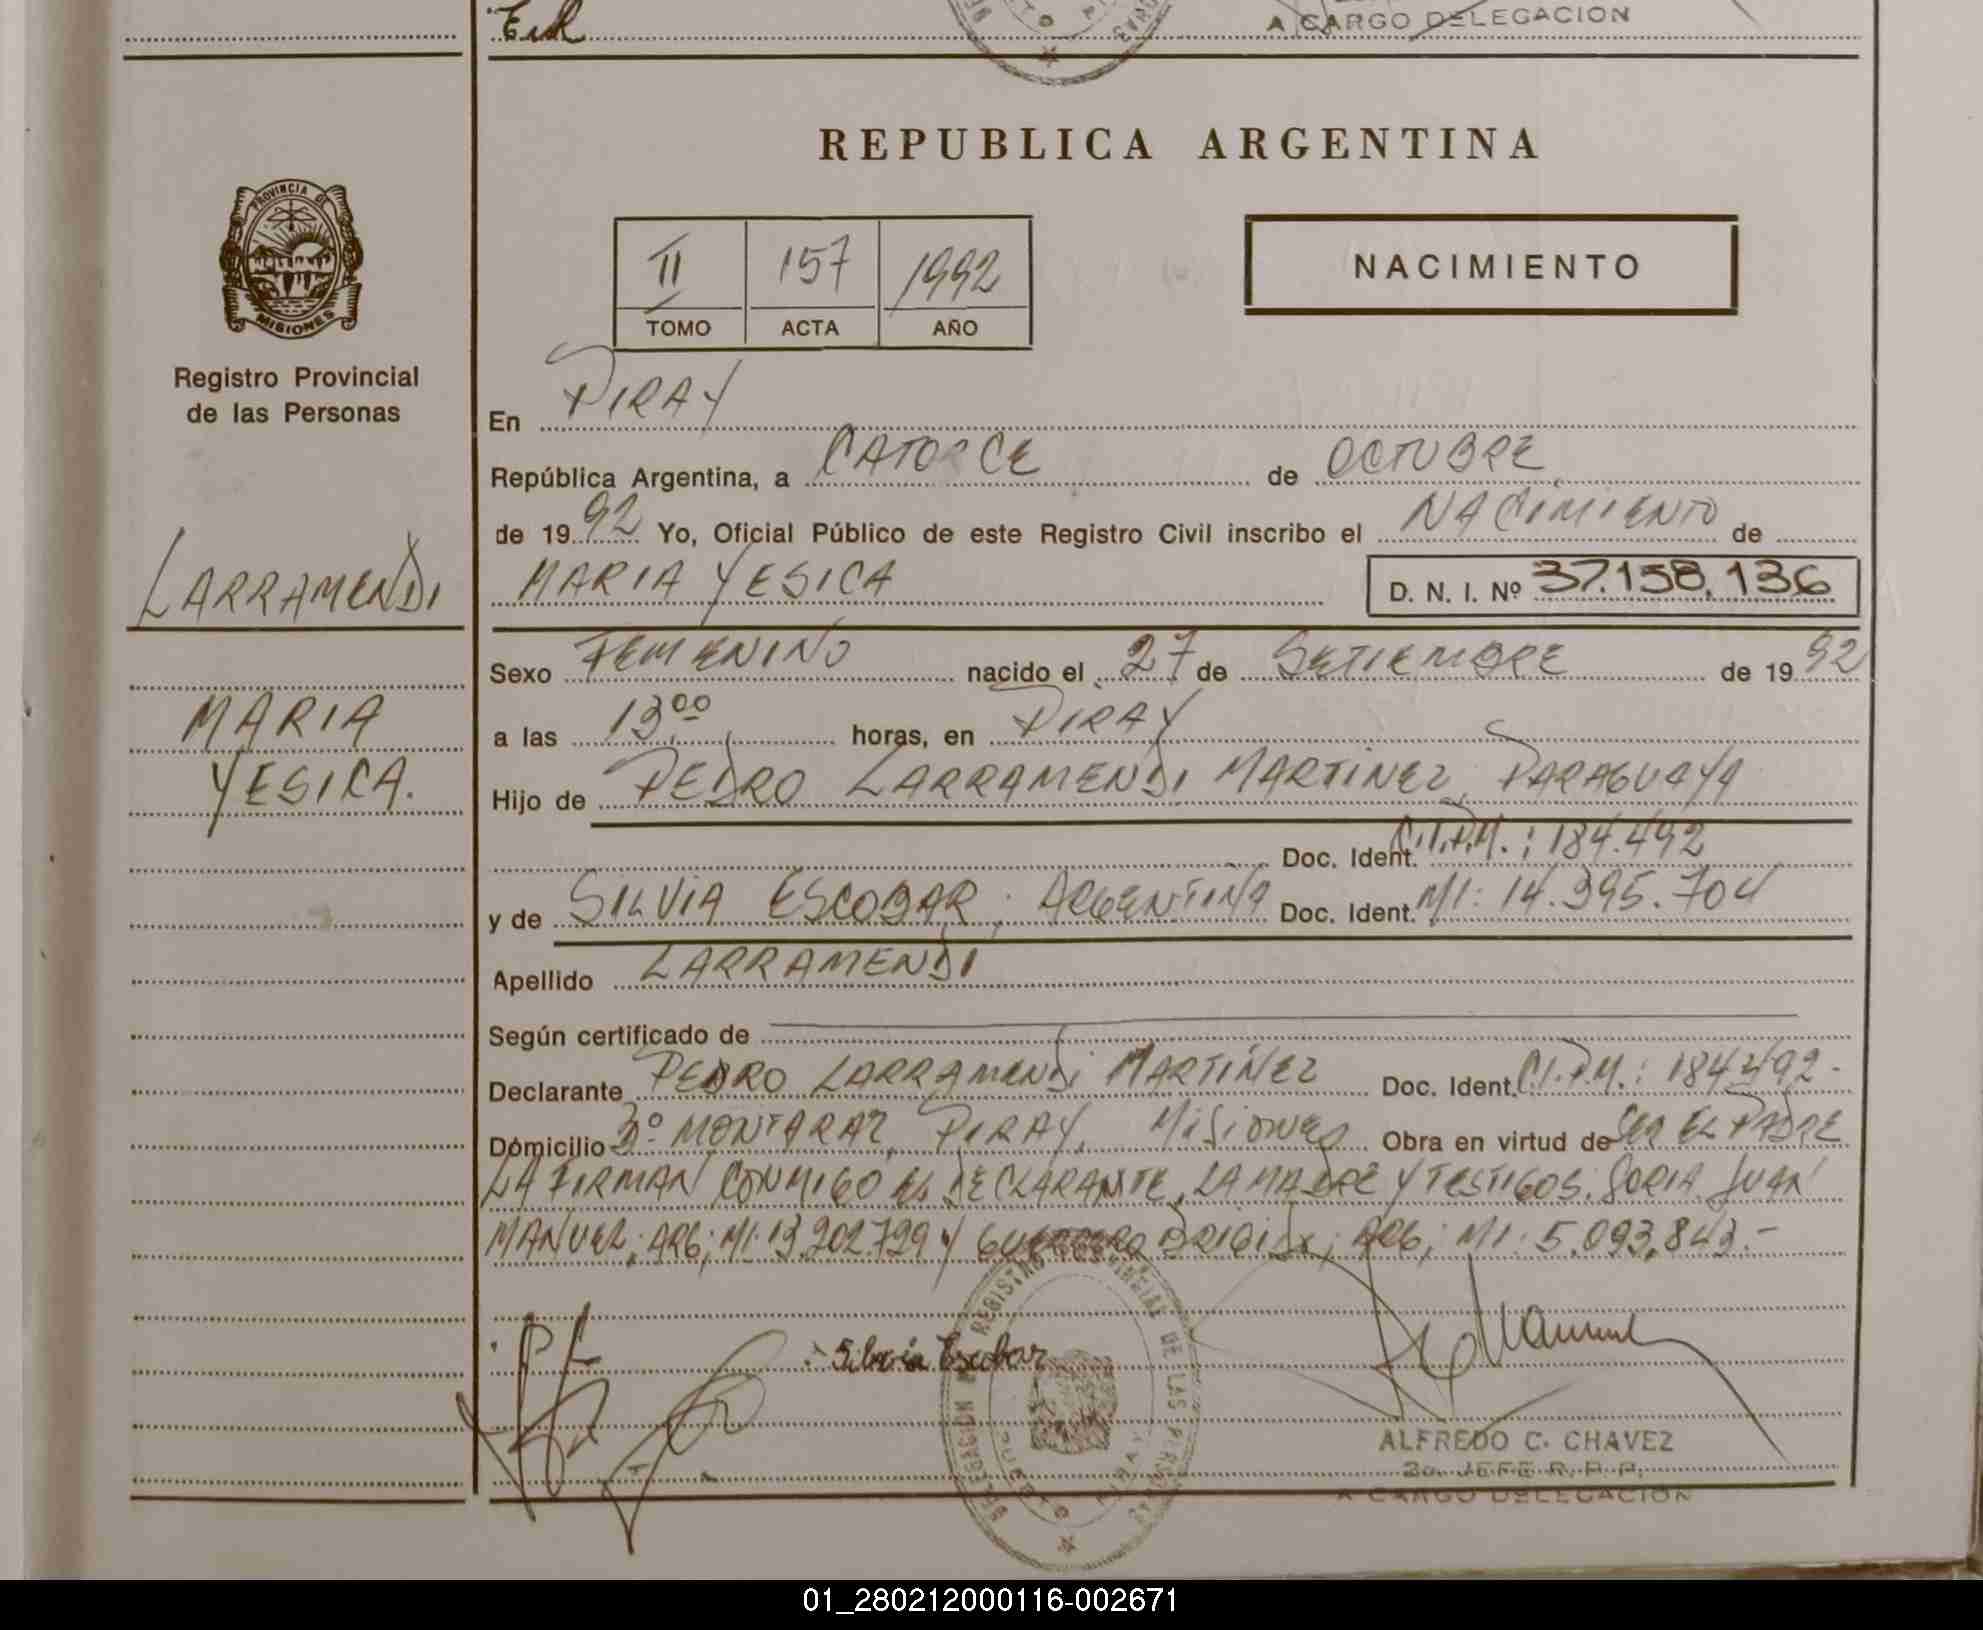 Eid
A CARGO DELEGACION
REPUBLICA ARGENTINA
PROVINCIA DE
MISIONES
Registro Provincial
de las Personas
II 157 1992
TOMO ACTA AÑO
NACIMIENTO
LARRAMENDI
MARIA
YESICA.
En PIRAY
República Argentina, a CATORCE de OCTUBRE
de 1992 Yo, Oficial Público de este Registro Civil inscribo el NACIMIENTO de
MARIA YESICA D. N. I. Nº 37.158.136
Sexo FEMENINO nacido el 27 de SETIEMBRE de 1992
a las 13.00 horas, en PIRAY
Hijo de PEDRO LARRAMENDI MARTINEZ, PARAGUAYA
Doc. Ident. C.I.P.M.: 184.492
y de SILVIA ESCOBAR; ARGENTINA Doc. Ident. MI: 14.395.704
Apellido LARRAMENDI
Según certificado de
Declarante PEDRO LARRAMENDI MARTINEZ Doc. Ident. C.I.P.M.: 184.492-
Domicilio 3º MONTARAZ, PIRAY, MISIONES Obra en virtud de SER EL PADRE
LA FIRMAN CONMIGO EL DECLARANTE, LA MADRE Y TESTIGOS: SORIA JUAN
MANUEL; ARG; MI: 13.202.729 Y GUERRERO BRIGIDA; ARG; MI: 5.093.843.-
Silvia Escobar
DELEGACION REGISTRO PROVINCIAL DE LAS PERSONAS
PUERTO PIRAY
ALFREDO C. CHAVEZ
2o. JEFE R. P. P.
A CARGO DELEGACION
01_280212000116-002671